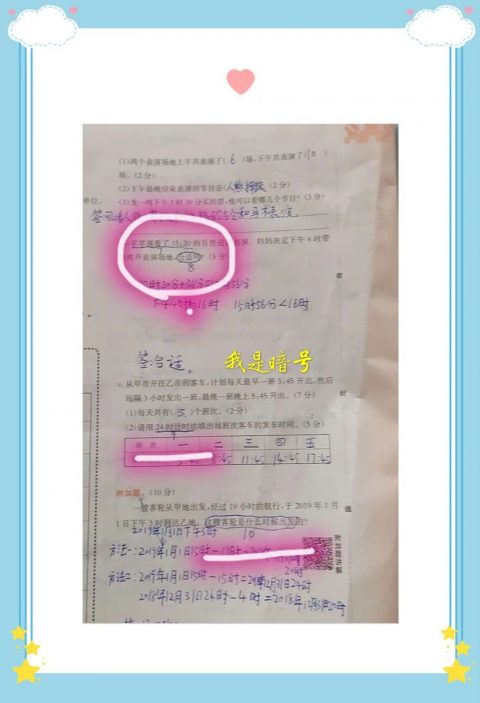 (1)两个表演场地上午共表演了( 6 )场,下午共表演了(10 )
场。(2分)
(2)下午最晚结束表演的节目是( )(2分)
单位,
(3)龙一鸣下午3时30分买的票,他可以看哪几个节目?(3分)
看了15:20的百兽 表演,妈妈决定下午4时带
离开表演场地,合适吗?(5分)
8
下午4时=16时 15时56分<16时
答:合适。
我是暗号
4.从甲市开往乙市的客车,计划每天最早一班5:45开出,然后
每隔3小时发出一班,最晚一班晚上5:45开出。(7分)
(1)每天共有( 5 )个班次。(2分)
(2)请用24时计时法填出每班次客车的发车时间。(5分)
9
班次 一 二 三 四 五
8:45 11:45 14:45 17:45
附加题。(10分)
一艘客轮从甲地出发,经过19小时的航行,于2019年1月
1日下午3时到达乙地。这艘客轮是什么时候出发的?
2019年1月1日下午3时 10
方法一:2019年1月1日15时-19时=
20时
方法二:2019年1月1日15时-15时=2018年12月31日24时
2018年12月31日24时-4时=2018年12月31日20时
密
封
线
附加题讲解